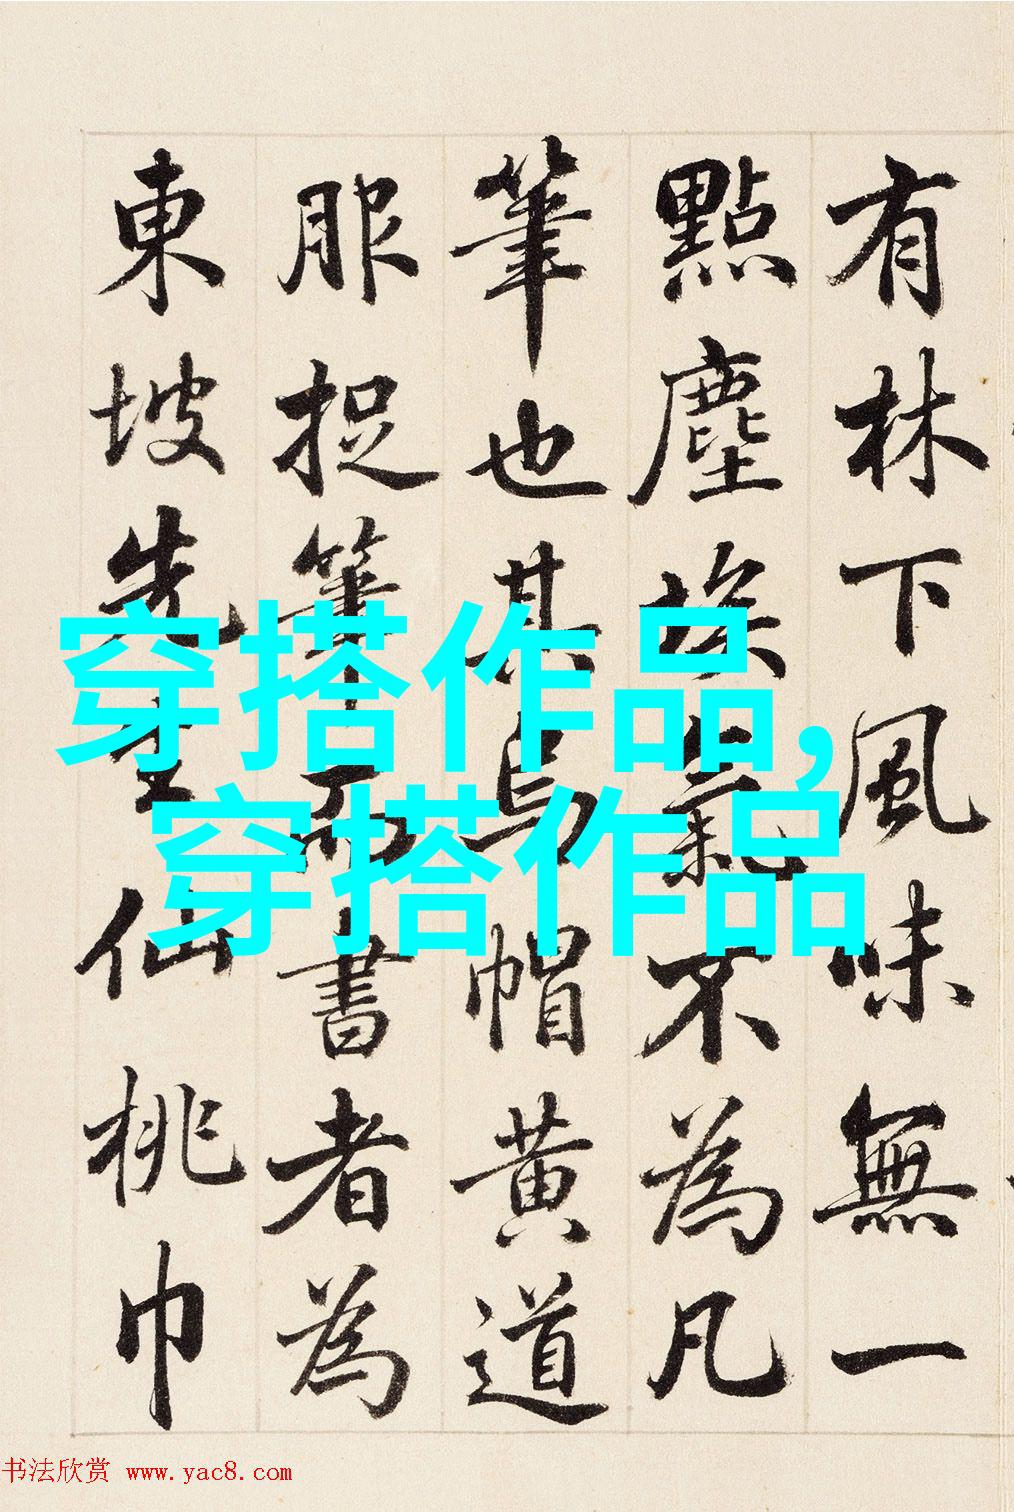 有林下風味無一
點塵埃氣不為凡
筆也其烏帽黃道
服捉筆而書者為
東坡先生仙桃巾
穿搭作品,
穿搭作品
书法欣赏 www.yac8.com